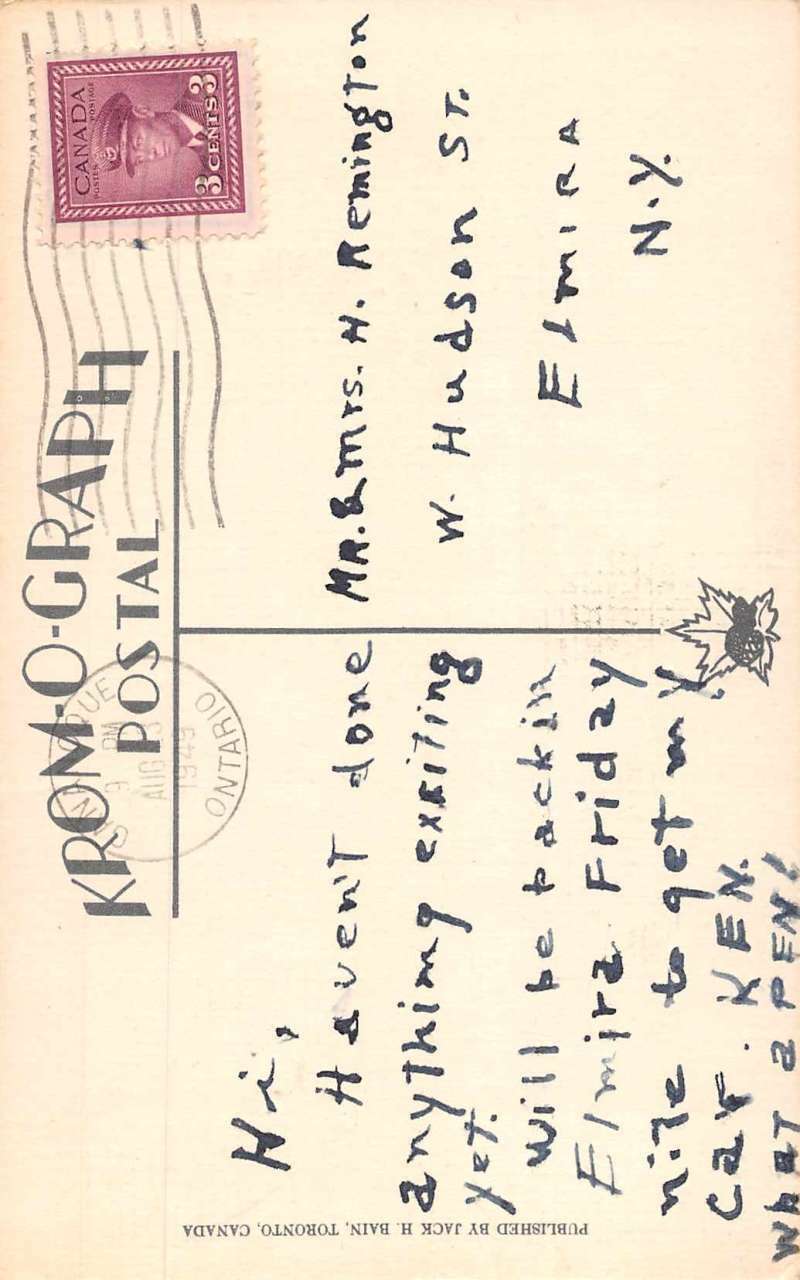 KROM-O-GRAPH
POSTAL
CANADA
POSTES POSTAGE
3 CENTS 3
9 PM
AUG
1949
ONTARIO
Hi,
Haven't done
anything exxiting
yet.
Will be back in
Elmira Friday
nite to get my
car. KEN.
What a PEN!
MR. & Mrs. H. Remington
W. Hudson ST.
Elmira
N.Y.
PUBLISHED BY JACK H. BAIN, TORONTO, CANADA